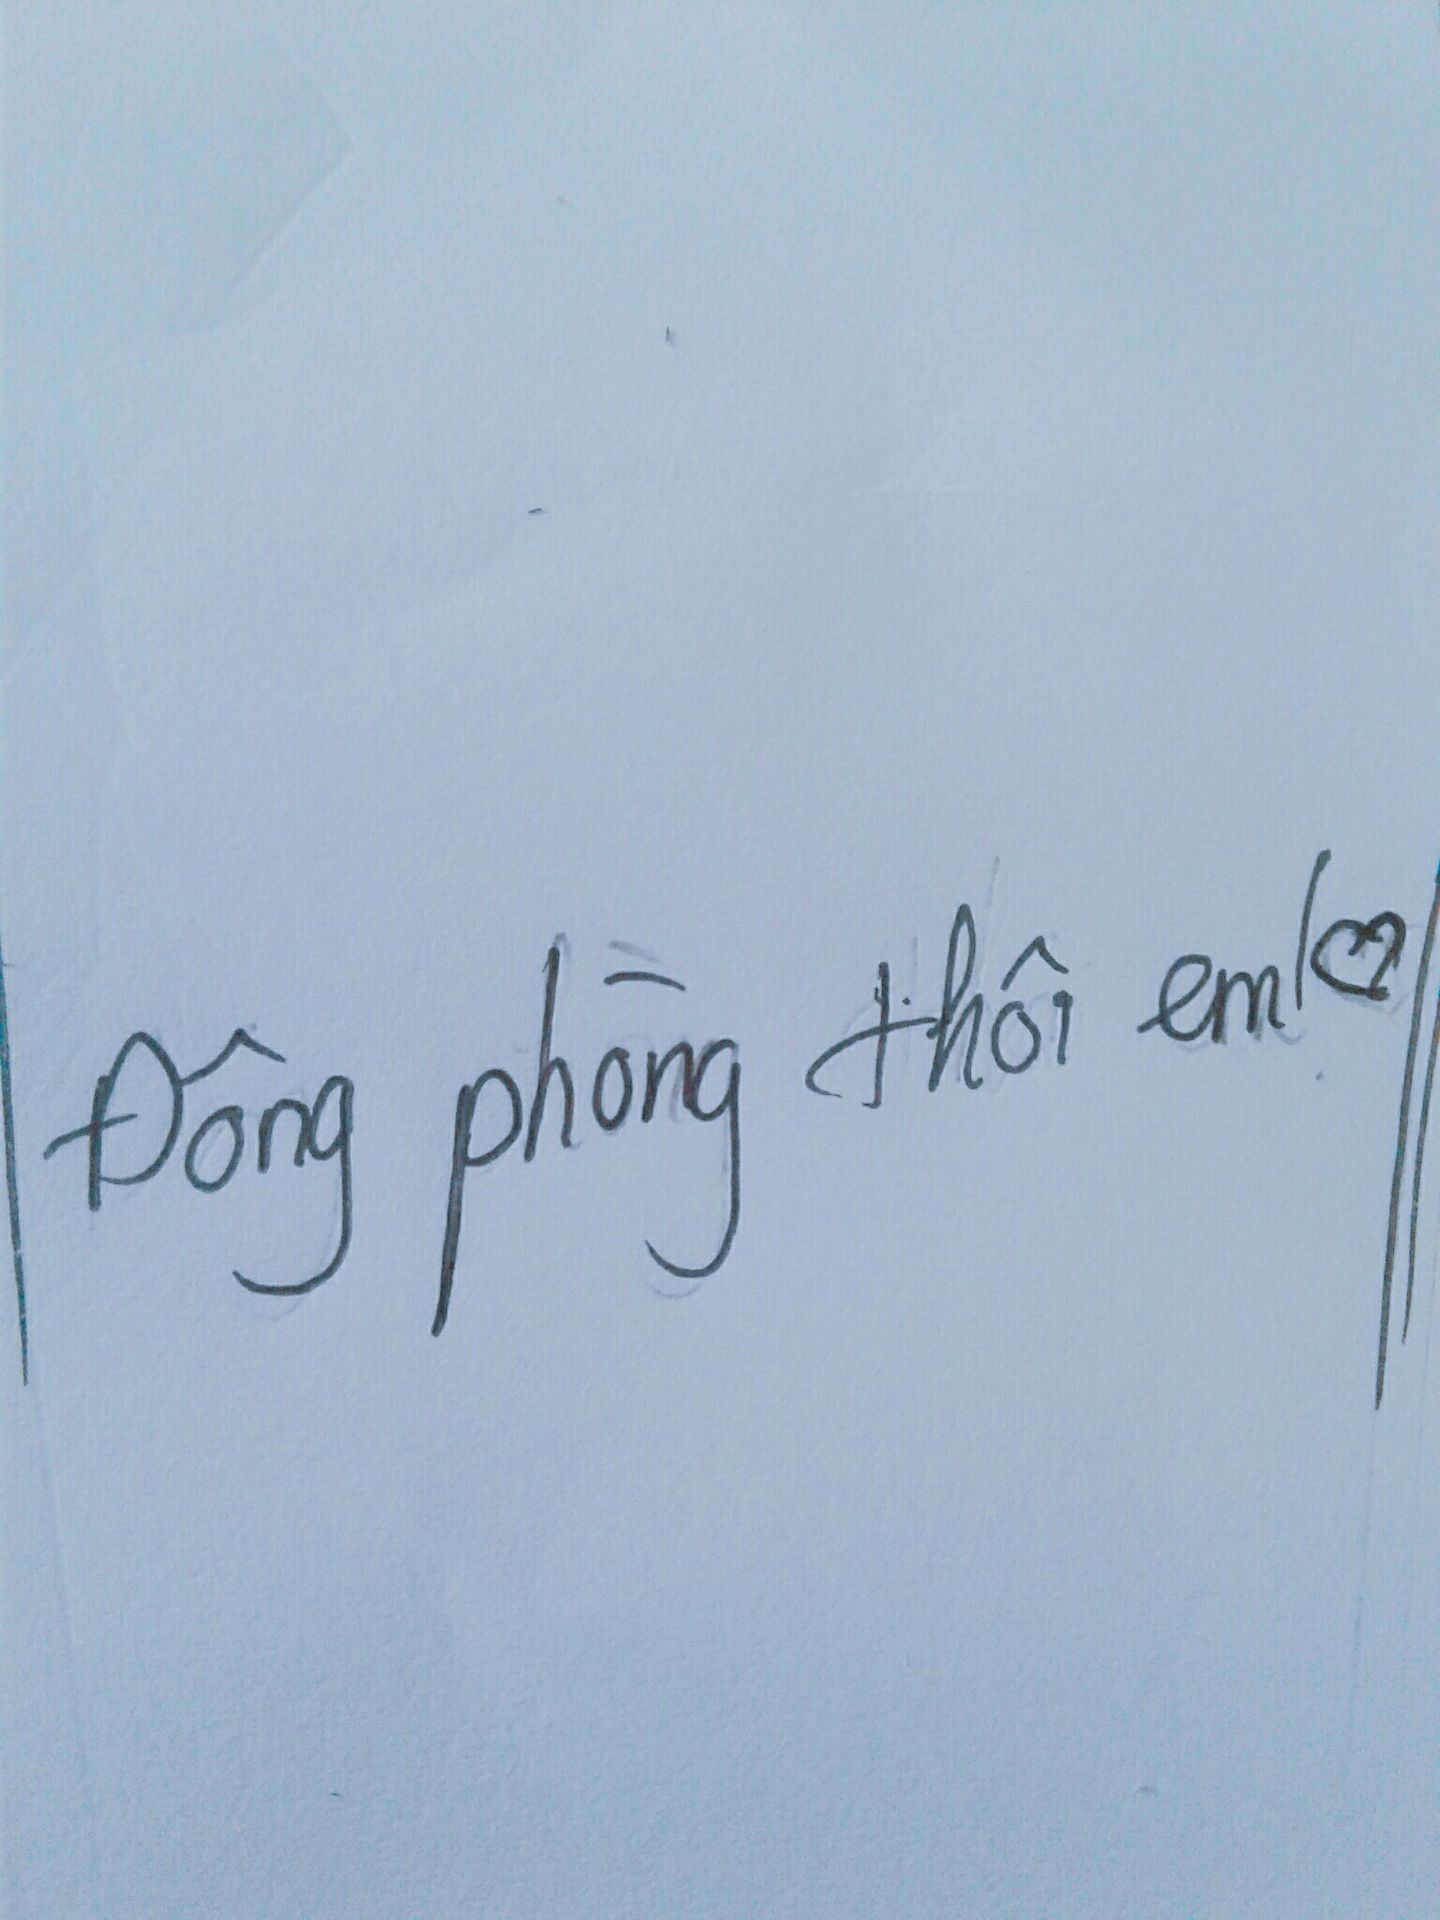 Đông phòng thôi em! ♡